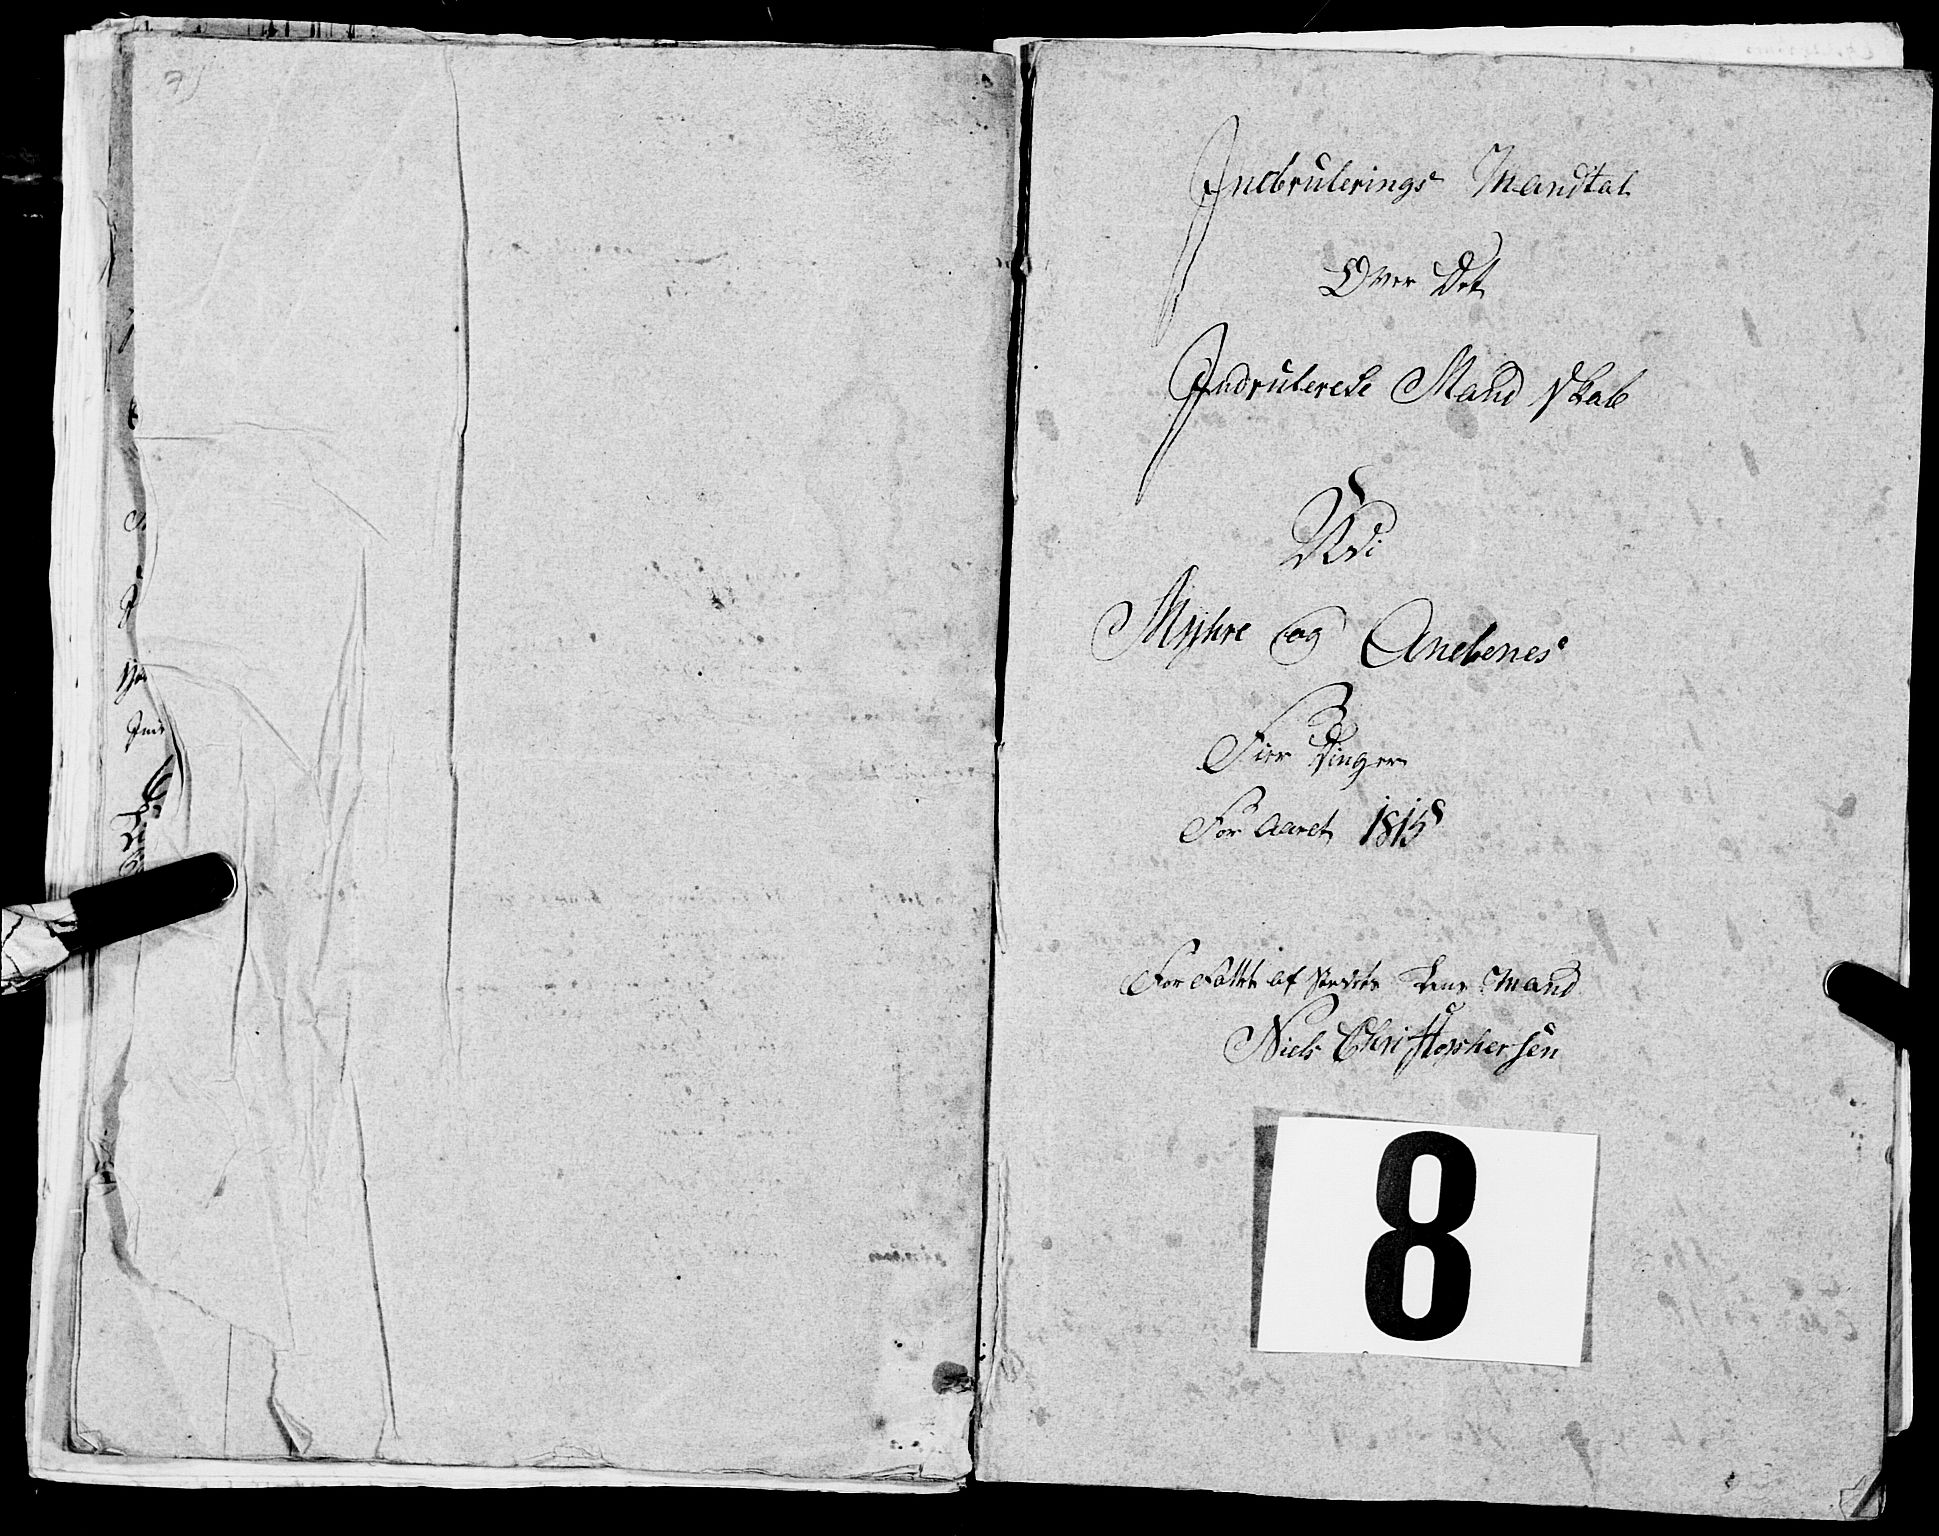 7)
Indrulerings Mandtal
Over Det
Indrulerede Mand Skab
Udi
Myhre og Anebenes
Fier Dinger
For Aaret 1815
Forfattet af Stedets Lens Mand
Niels Christophersen
8